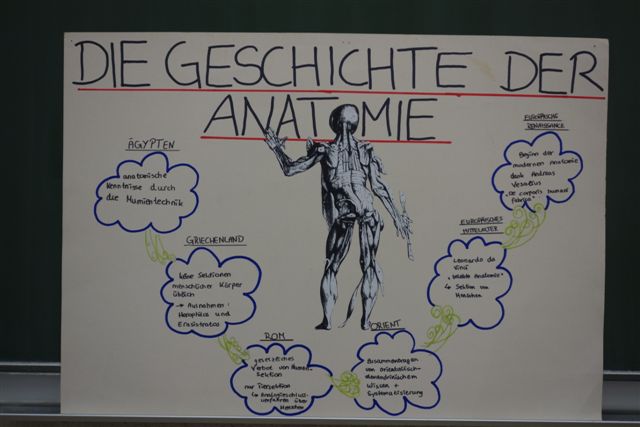 DIE GESCHICHTE DER
ANATOMIE
ÄGYPTEN
anatomische
Kenntnisse durch
die Mumientechnik
GRIECHENLAND
keine Sektionen
menschlicher Körper
üblich
→ Ausnahmen:
Herophilos und
Erasistratos
ROM
gesetzliches
Verbot von
Sektion
nur Tiersektion
↳ Analogieschluss-
über
Menschen
ORIENT
Zusammentragen
von orientalisch-
alexandrinischem
Wissen +
Systematisierung
EUROPÄISCHES
MITTELALTER
Leonardo da
Vinci
Anatomie"
↳ Sektion von
Menschen
EUROPÄISCHE
RENAISSANCE
Beginn der
modernen Anatomie
dank Andreas
Vesalius
"De corporis humani
fabrica"